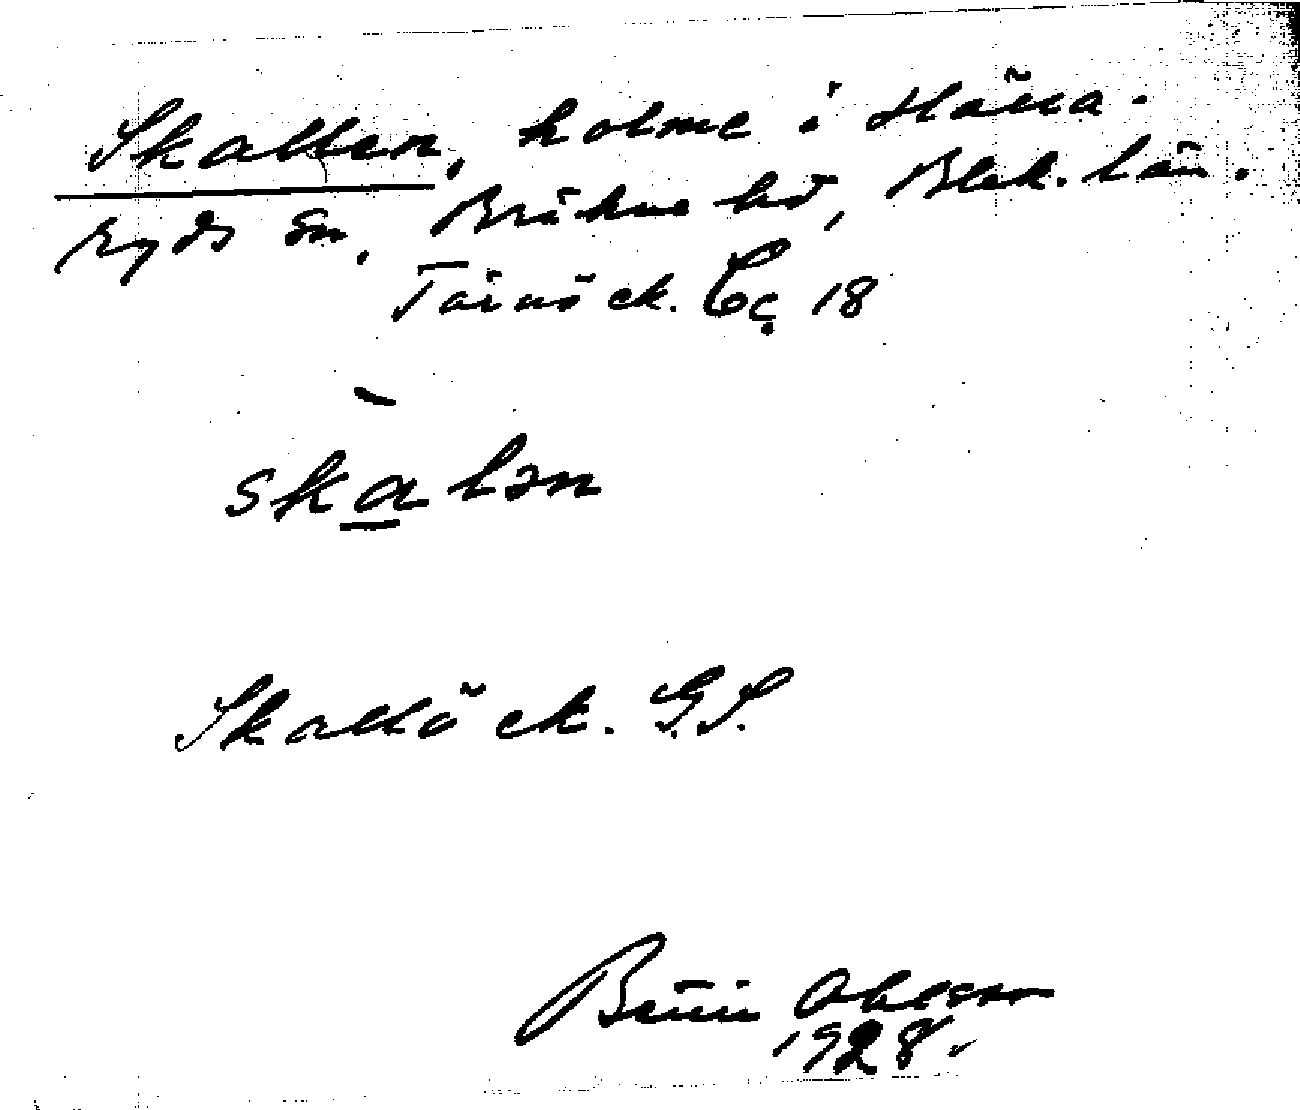 Skallen, holme i Hälla-
ryds sn, Bräkne hd, Blek. län.
Tärnö ek. Cç 18
skàlən
Skallö ek. G.S.
Bengt Ohlsson
1928.